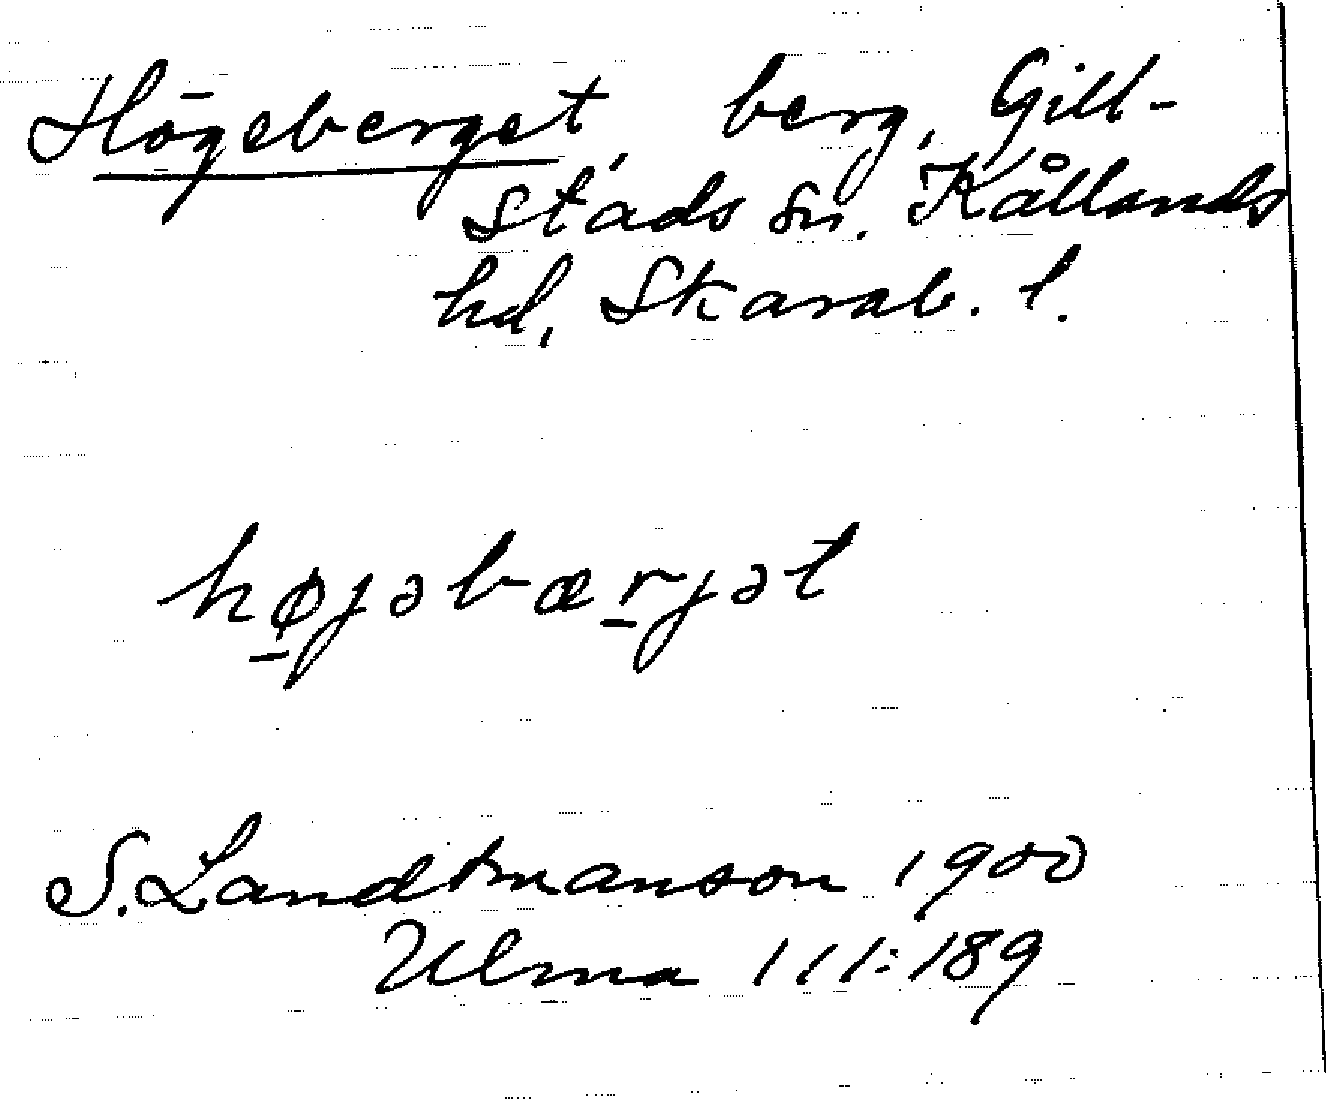 Högeberget, berg, Gill-
stads sn. Kållands
hd, Skarab. l.
hø̱jəbæṟjət
S. Landtmanson 1900
Ulma 111:189